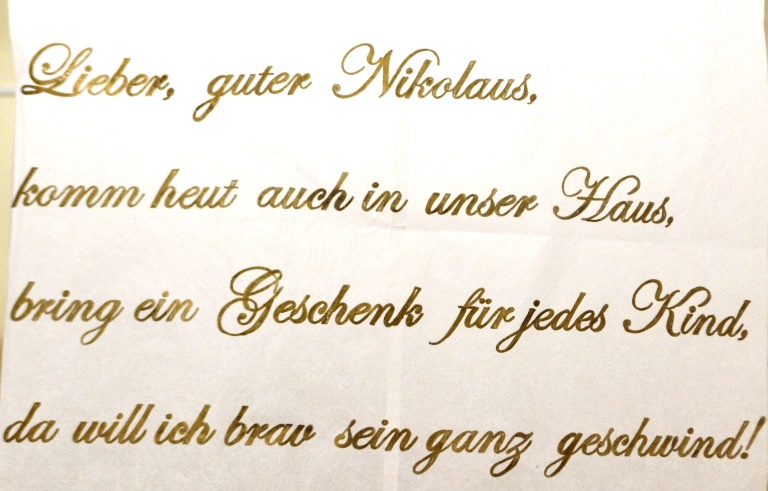 Lieber, guter Nikolaus,
komm heut auch in unser Haus,
bring ein Geschenk für jedes Kind,
da will ich brav sein ganz geschwind!